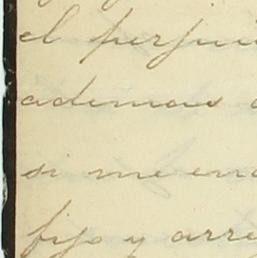 el perjui
ademas a
si me enc
fijo y arre